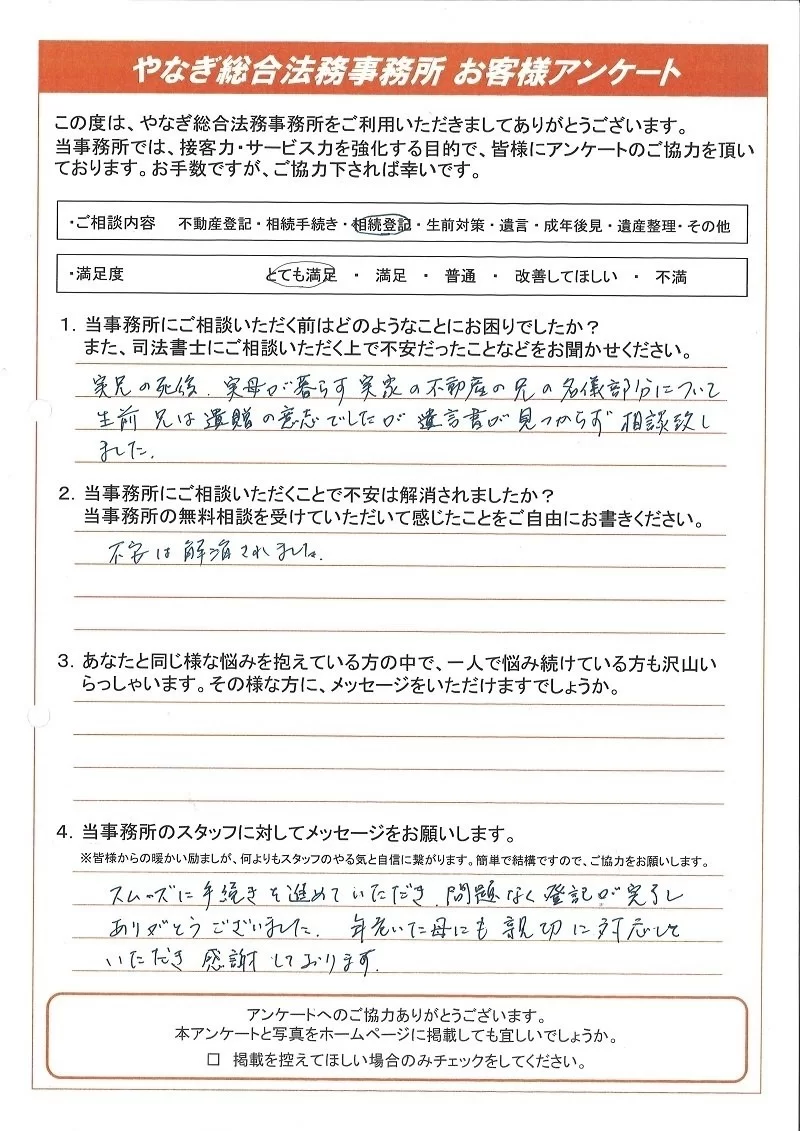 やなぎ総合法務事務所 お客様アンケート
この度は、やなぎ総合法務事務所をご利用いただきましてありがとうございます。
当事務所では、接客力・サービス力を強化する目的で、皆様にアンケートのご協力を頂い
ております。お手数ですが、ご協力下されば幸いです。
・ご相談内容 不動産登記・相続手続き・相続登記・生前対策・遺言・成年後見・遺産整理・その他
・満足度 とても満足 ・ 満足 ・ 普通 ・ 改善してほしい ・ 不満
1. 当事務所にご相談いただく前はどのようなことにお困りでしたか？
また、司法書士にご相談いただく上で不安だったことなどをお聞かせください。
実兄の死後、実母が暮らす実家の不動産の兄の名儀部分について
生前 兄は遺贈の意志でしたが 遺言書が見つからず 相談致し
ました。
2. 当事務所にご相談いただくことで不安は解消されましたか？
当事務所の無料相談を受けていただいて感じたことをご自由にお書きください。
不安は解消されました。
3. あなたと同じ様な悩みを抱えている方の中で、一人で悩み続けている方も沢山い
らっしゃいます。その様な方に、メッセージをいただけますでしょうか。
4. 当事務所のスタッフに対してメッセージをお願いします。
※皆様からの暖かい励ましが、何よりもスタッフのやる気と自信に繋がります。簡単で結構ですので、ご協力をお願いします。
スムーズに手続きを進めていただき、問題なく登記が完了し
ありがとうございました。 年老いた母にも 親切に対応して
いただき 感謝しております。
アンケートへのご協力ありがとうございます。
本アンケートと写真をホームページに掲載しても宜しいでしょうか。
□ 掲載を控えてほしい場合のみチェックをしてください。